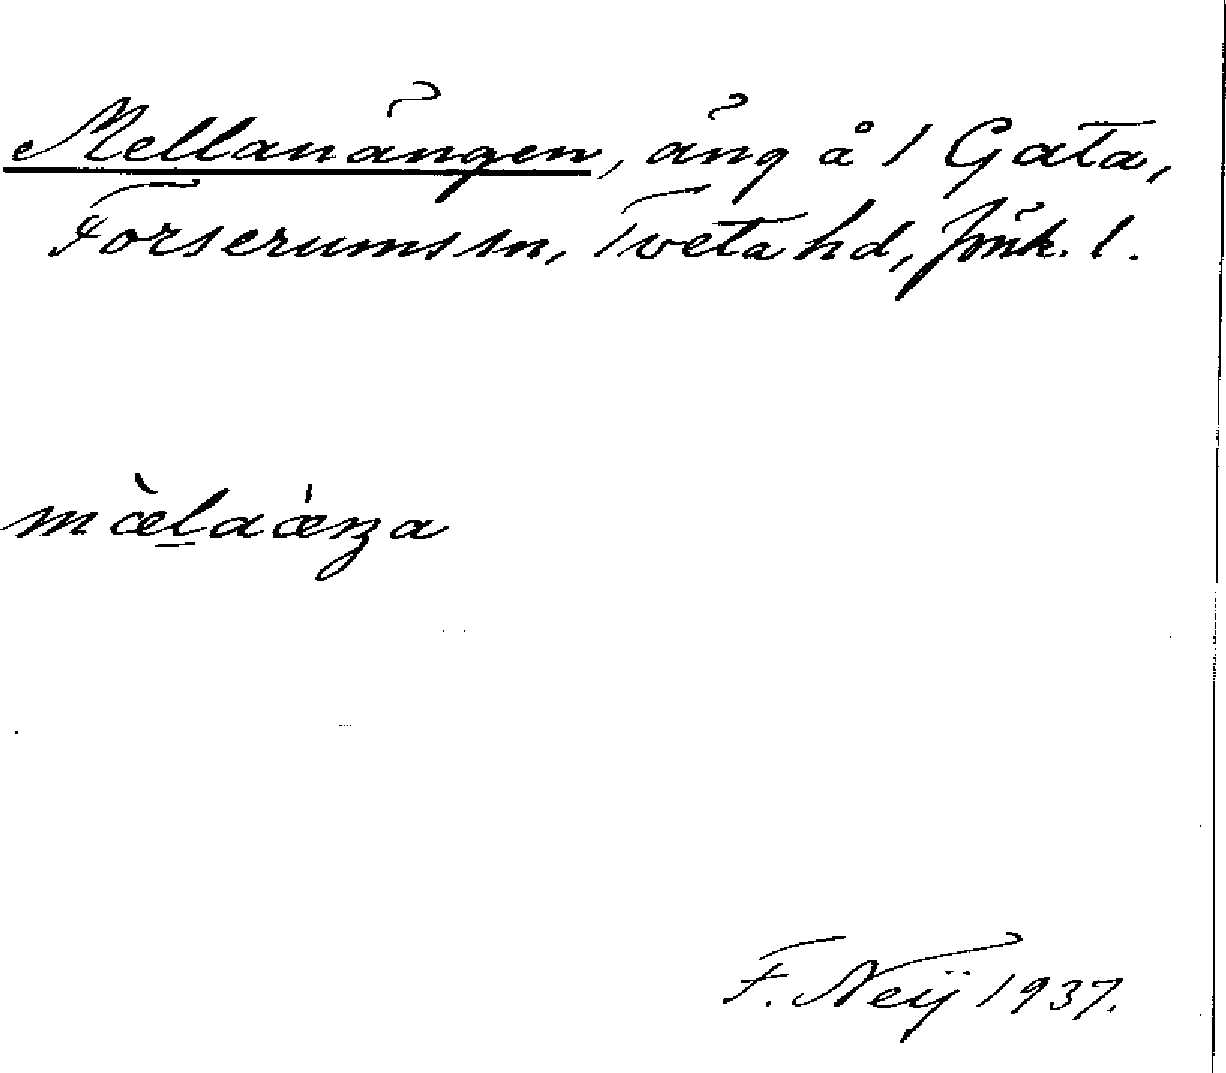 Mellanängen, äng å 1 Gata,
Forserums sn, Tveta hd, Jönk. l.
mæ̀laǽŋa
F. Neij 1937.